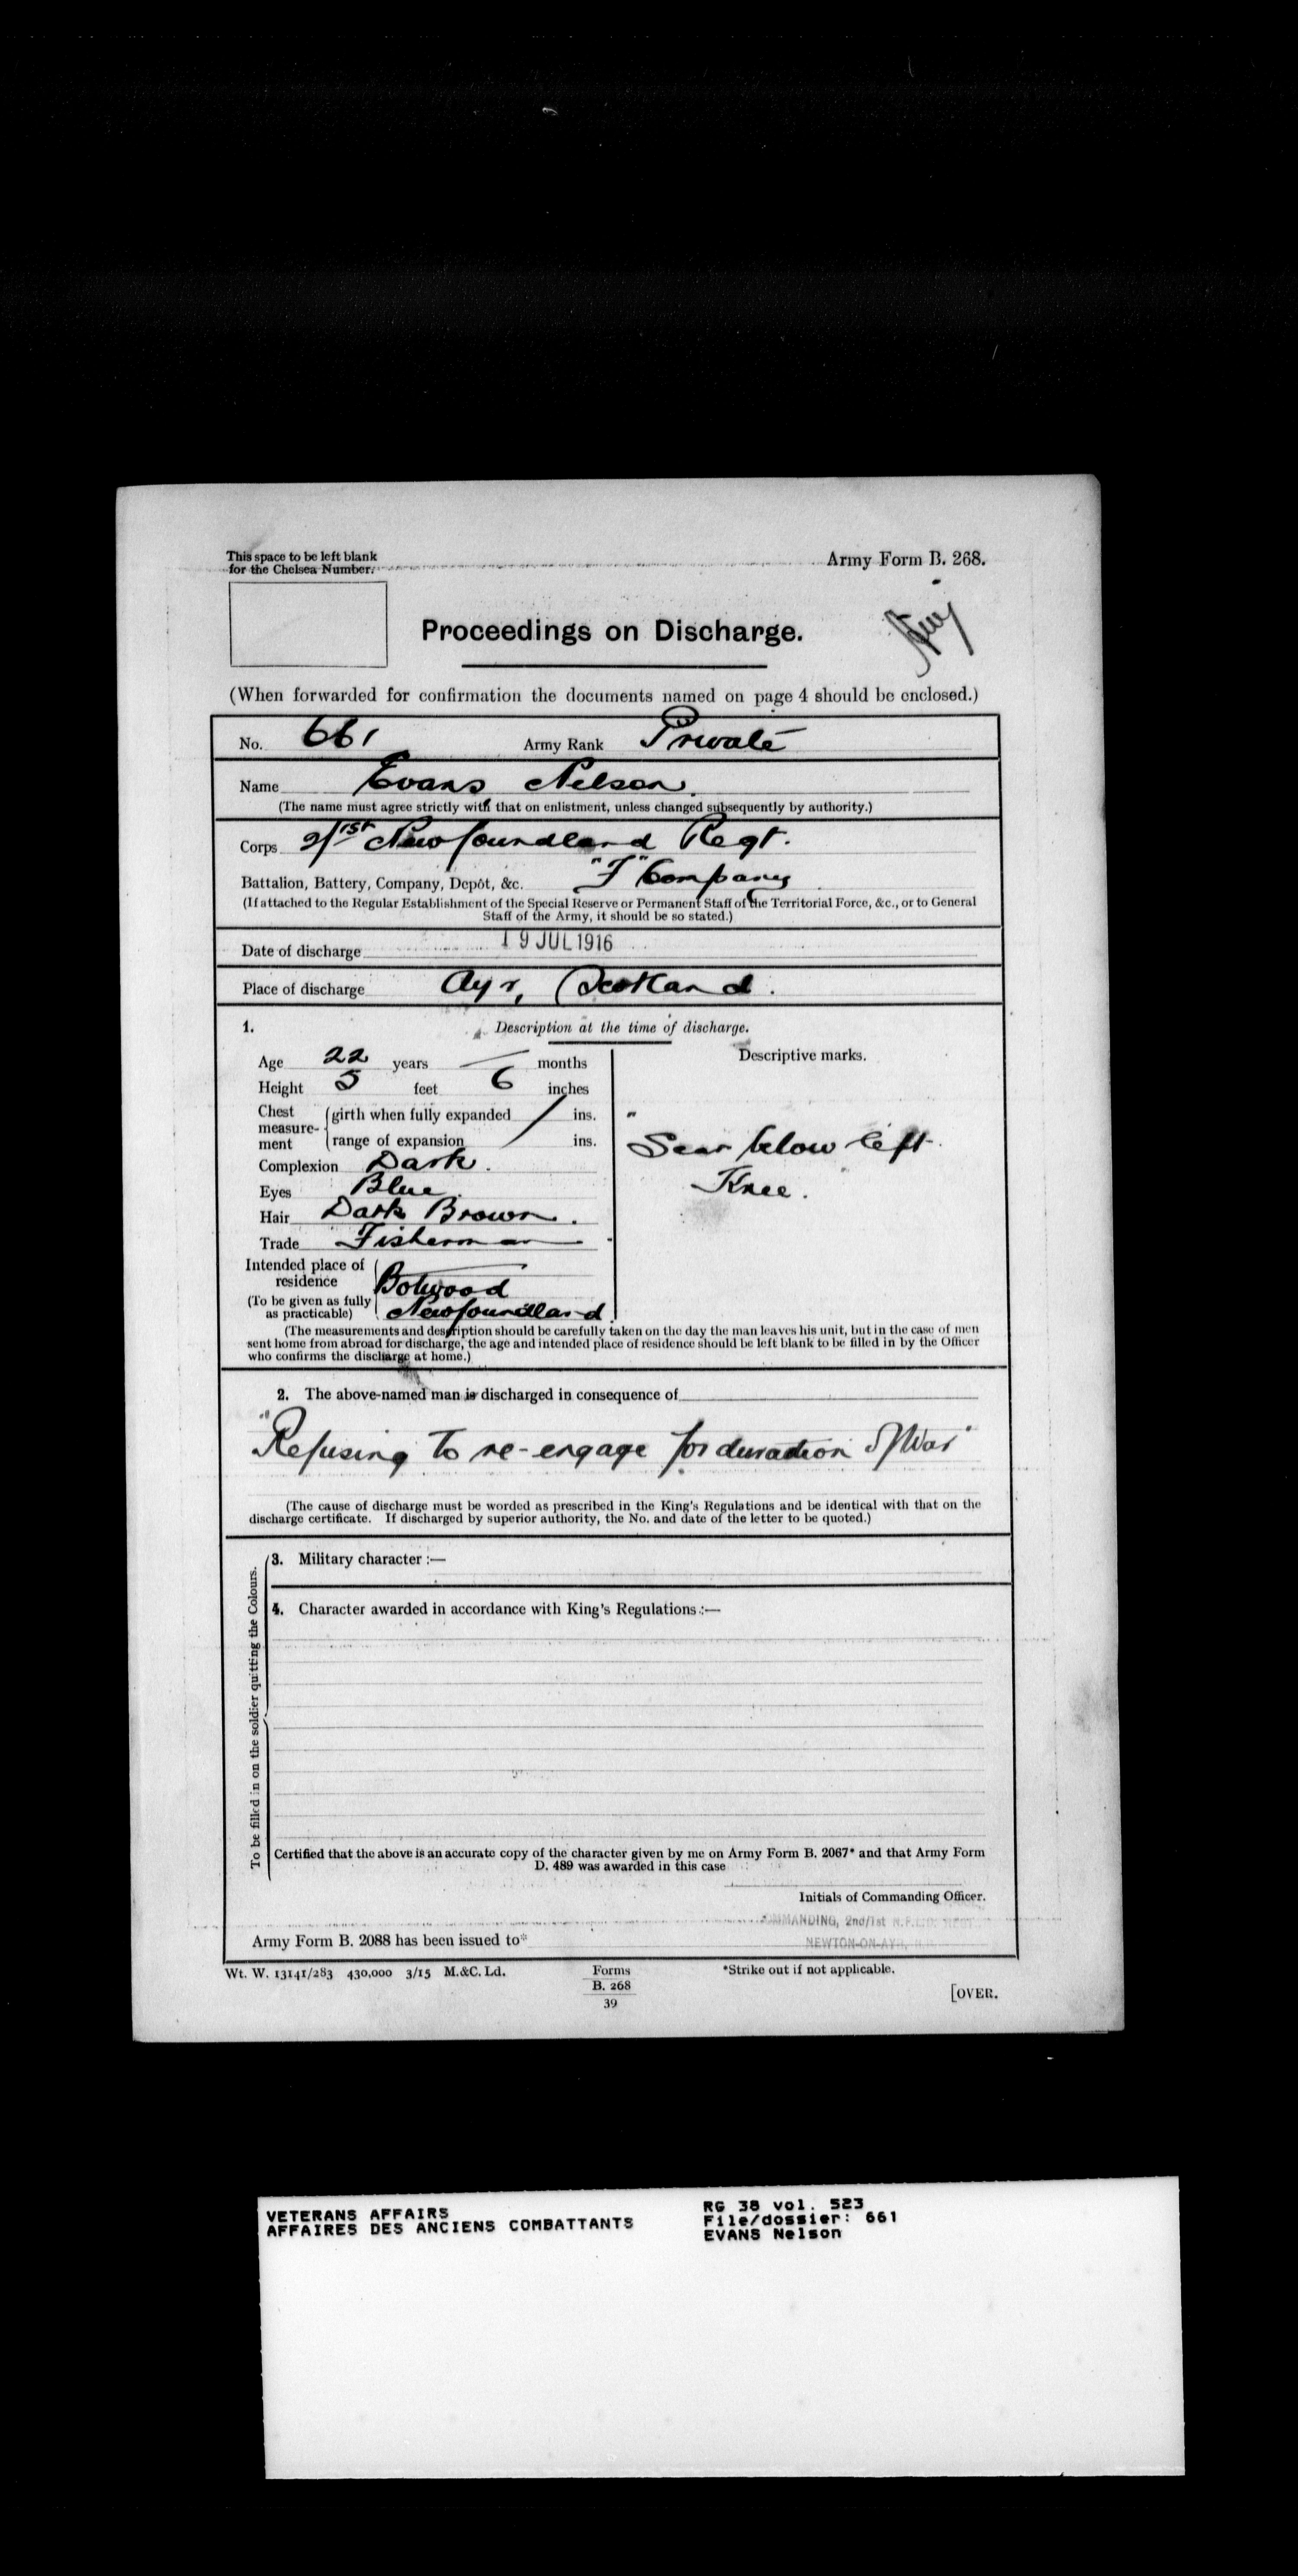 This space to be left blank
for the Chelsea Number.
Army Form B. 268.
Proceedings on Discharge.
(When forwarded for confirmation the documents named on page 4 should be enclosed.)
No. 661 Army Rank Private
Name Evans Nelson.
(The name must agree strictly with that on enlistment, unless changed subsequently by authority.)
Corps 2/1st Newfoundland Regt.
Battalion, Battery, Company, Depôt, &c. "F" Company
(If attached to the Regular Establishment of the Special Reserve or Permanent Staff of the Territorial Force, &c., or to General
Staff of the Army, it should be so stated.)
Date of discharge 19 JUL 1916
Place of discharge Ayr, Scotland.
1. Description at the time of discharge.
Age 22 years — months
Height 5 feet 6 inches
Chest measure-ment
girth when fully expanded ins.
range of expansion ins.
Complexion Dark.
Eyes Blue.
Hair Dark Brown.
Trade Fisherman
Intended place of
residence
(To be given as fully
as practicable)
Botwood
Newfoundland.
Descriptive marks.
Scar below left
Knee.
(The measurements and description should be carefully taken on the day the man leaves his unit, but in the case of men
sent home from abroad for discharge, the age and intended place of residence should be left blank to be filled in by the Officer
who confirms the discharge at home.)
2. The above-named man is discharged in consequence of
"Refusing to re-engage for duration of War"
(The cause of discharge must be worded as prescribed in the King's Regulations and be identical with that on the
discharge certificate. If discharged by superior authority, the No. and date of the letter to be quoted.)
To be filled in on the soldier quitting the Colours.
3. Military character :—
4. Character awarded in accordance with King's Regulations :—
Certified that the above is an accurate copy of the character given by me on Army Form B. 2067* and that Army Form
D. 489 was awarded in this case
Initials of Commanding Officer.
COMMANDING, 2nd/1st
NEWTON-ON-AYR,
Army Form B. 2088 has been issued to*
Wt. W. 13141/283 430,000 3/15 M.&C. Ld.
Forms
B. 268
39
*Strike out if not applicable.
[OVER.
VETERANS AFFAIRS
AFFAIRES DES ANCIENS COMBATTANTS
RG 38 vol. 523
File/dossier: 661
EVANS Nelson